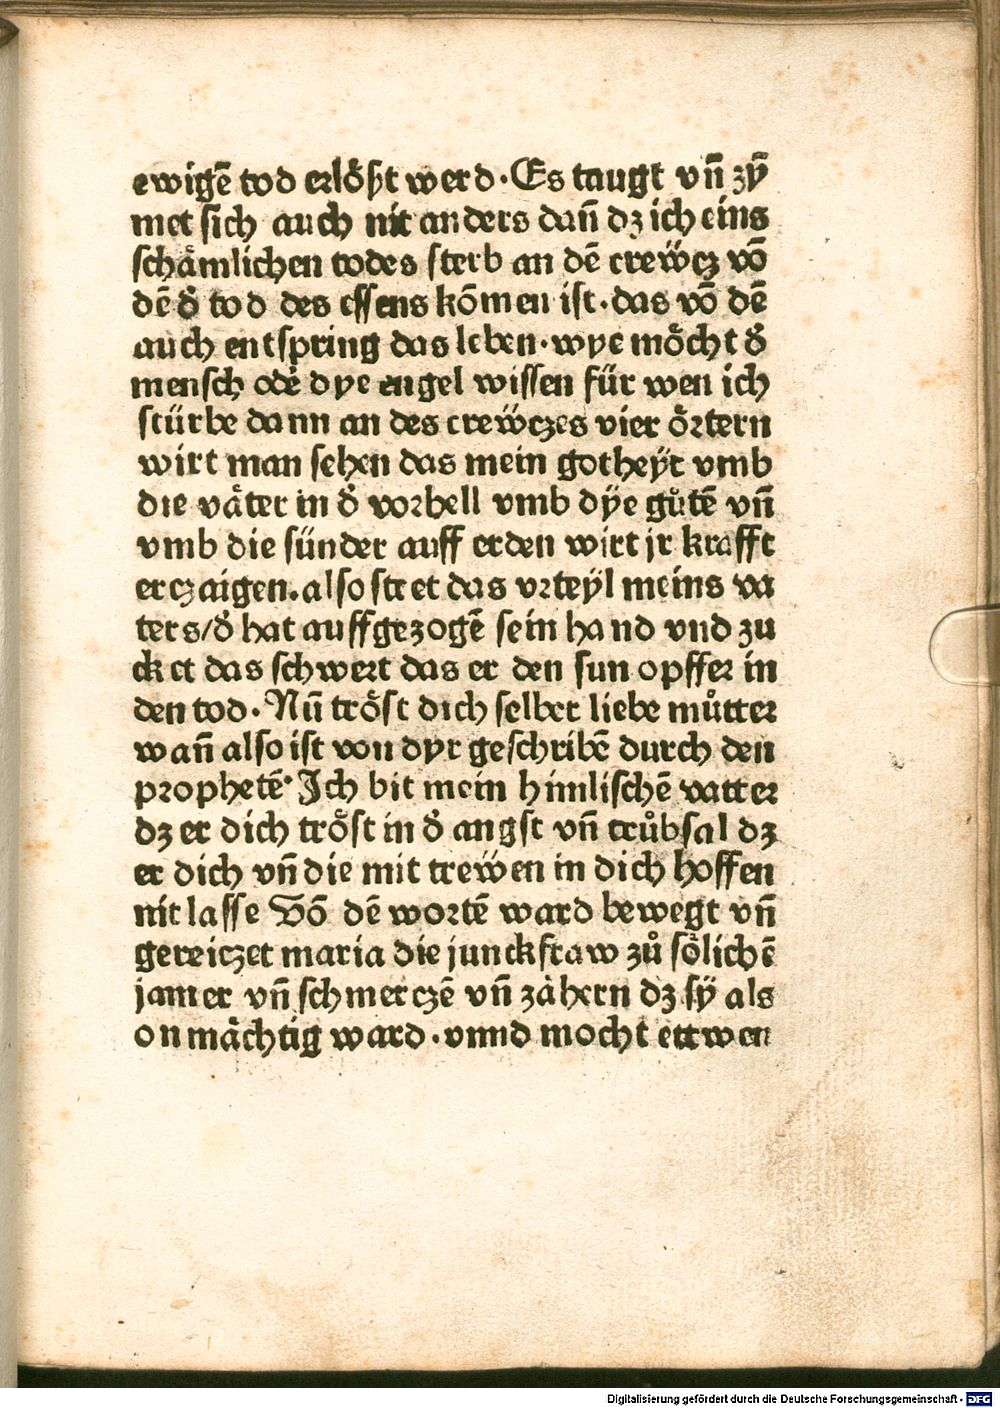 ewigē tod erlößt werd. Es taugt vn̄ zÿ
met sich auch nit anders dan̄ dz ich eins
schämlichen todes sterb an dē crewͤcz vō
dē dͤ tod des essens kōmen ist. das vō dē
auch entspring das leben. wye möcht dͤ
mensch odeͤ dye engel wissen für wen ich
stürbe dann an des crewͤczes vier örtern
wirt man sehen das mein gotheÿt vmb
die väter in dͤ vorhell vmb dÿe gůtē vn̄
vmb die sünder auff erden wirt jr krafft
erczaigen. also stet das vrteÿl meins va
ters/dͤ hat auffgezogē sein hand vnd zu
cket das schwert das er den sun opffer in
den tod. Nū tröst dich selber liebe můtter
wan̄ also ist von dyr geschribē durch den
prophetē. Ich bit mein himlischē vatter
dz er dich tröst in dͤ angst vn̄ trůbsal dz
er dich vn̄ die mit trewͤen in dich hoffen
nit lasse Vō dē wortē ward bewegt vn̄
gereiczet maria die junckfraw zů sölichē
jamer vn̄ schmerczē vn̄ zähern dz sÿ als
onmächtig ward. vnnd mocht ettwen
Digitalisierung gefördert durch die Deutsche Forschungsgemeinschaft - DFG